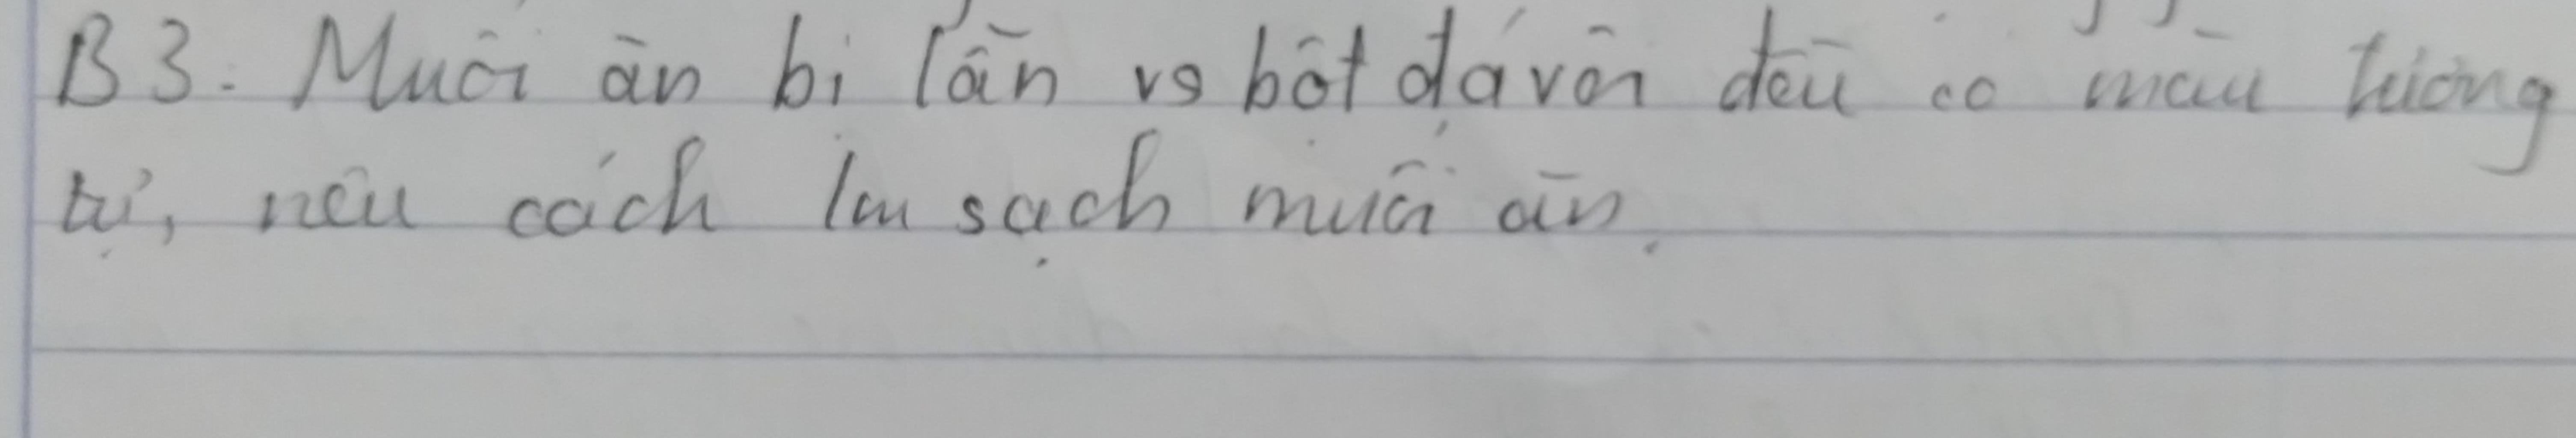 B3. Muối ăn bị lẫn vs bột đá vôi đều có màu tương
tự, nêu cách lm sạch muối ăn.